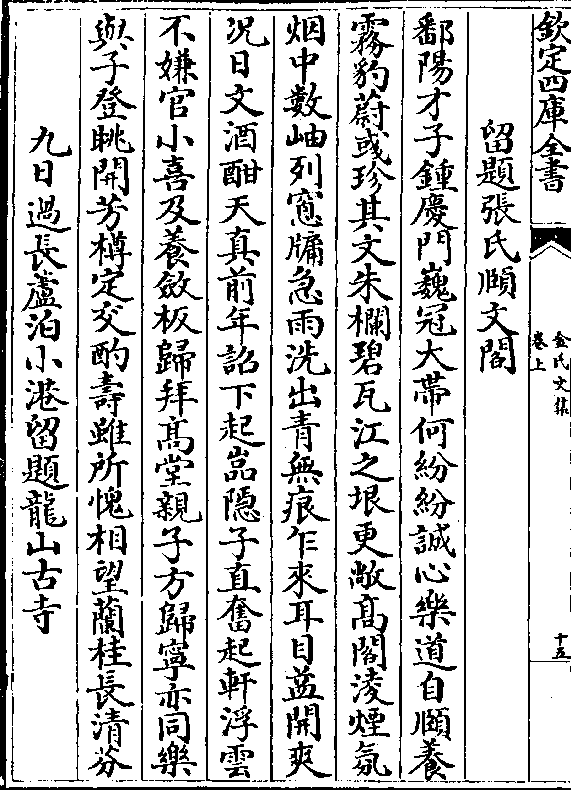 欽定四庫全書
金氏文集
卷上
十五
留題張氏頤文閣
鄱陽才子鍾慶門巍冠大帶何紛紛誠心樂道自頤養
霧豹蔚彧珍其文朱欄碧瓦江之垠更敞髙閣淩煙氛
烟中數岫列窻牖急雨洗出青無痕乍來耳目葢開爽
况日文酒酣天真前年詔下起嵓隠子直奮起軒浮雲
不嫌官小喜及養斂板歸拜髙堂親子方歸寧亦同樂
與子登眺開芳樽定交酌壽雖所愧相望蘭桂長清芬
九日過長蘆泊小港留題龍山古寺